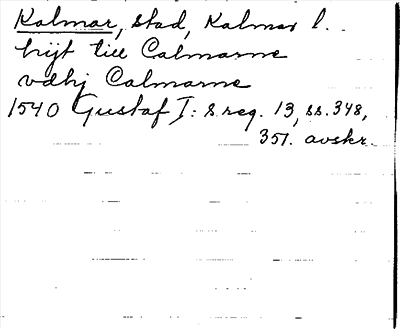 Kalmar, stad, Kalmar l.
hijt till Calmarne
vdhj Calmarne
1540 Gustaf I: s reg. 13, ss. 348,
351. avskr.